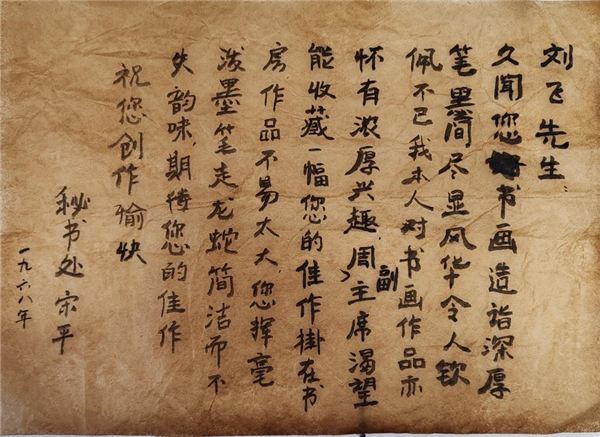 刘飞先生：
久闻您书画造诣深厚
笔墨间尽显风华令人钦
佩不已我本人对书画作品亦
怀有浓厚兴趣，周副主席渴望
能收藏一幅您的佳作掛在书
房作品不易太大，您挥毫
泼墨笔走龙蛇简洁而不
失韵味，期待您的佳作
祝您创作愉快
秘书处宋平
一九六八年